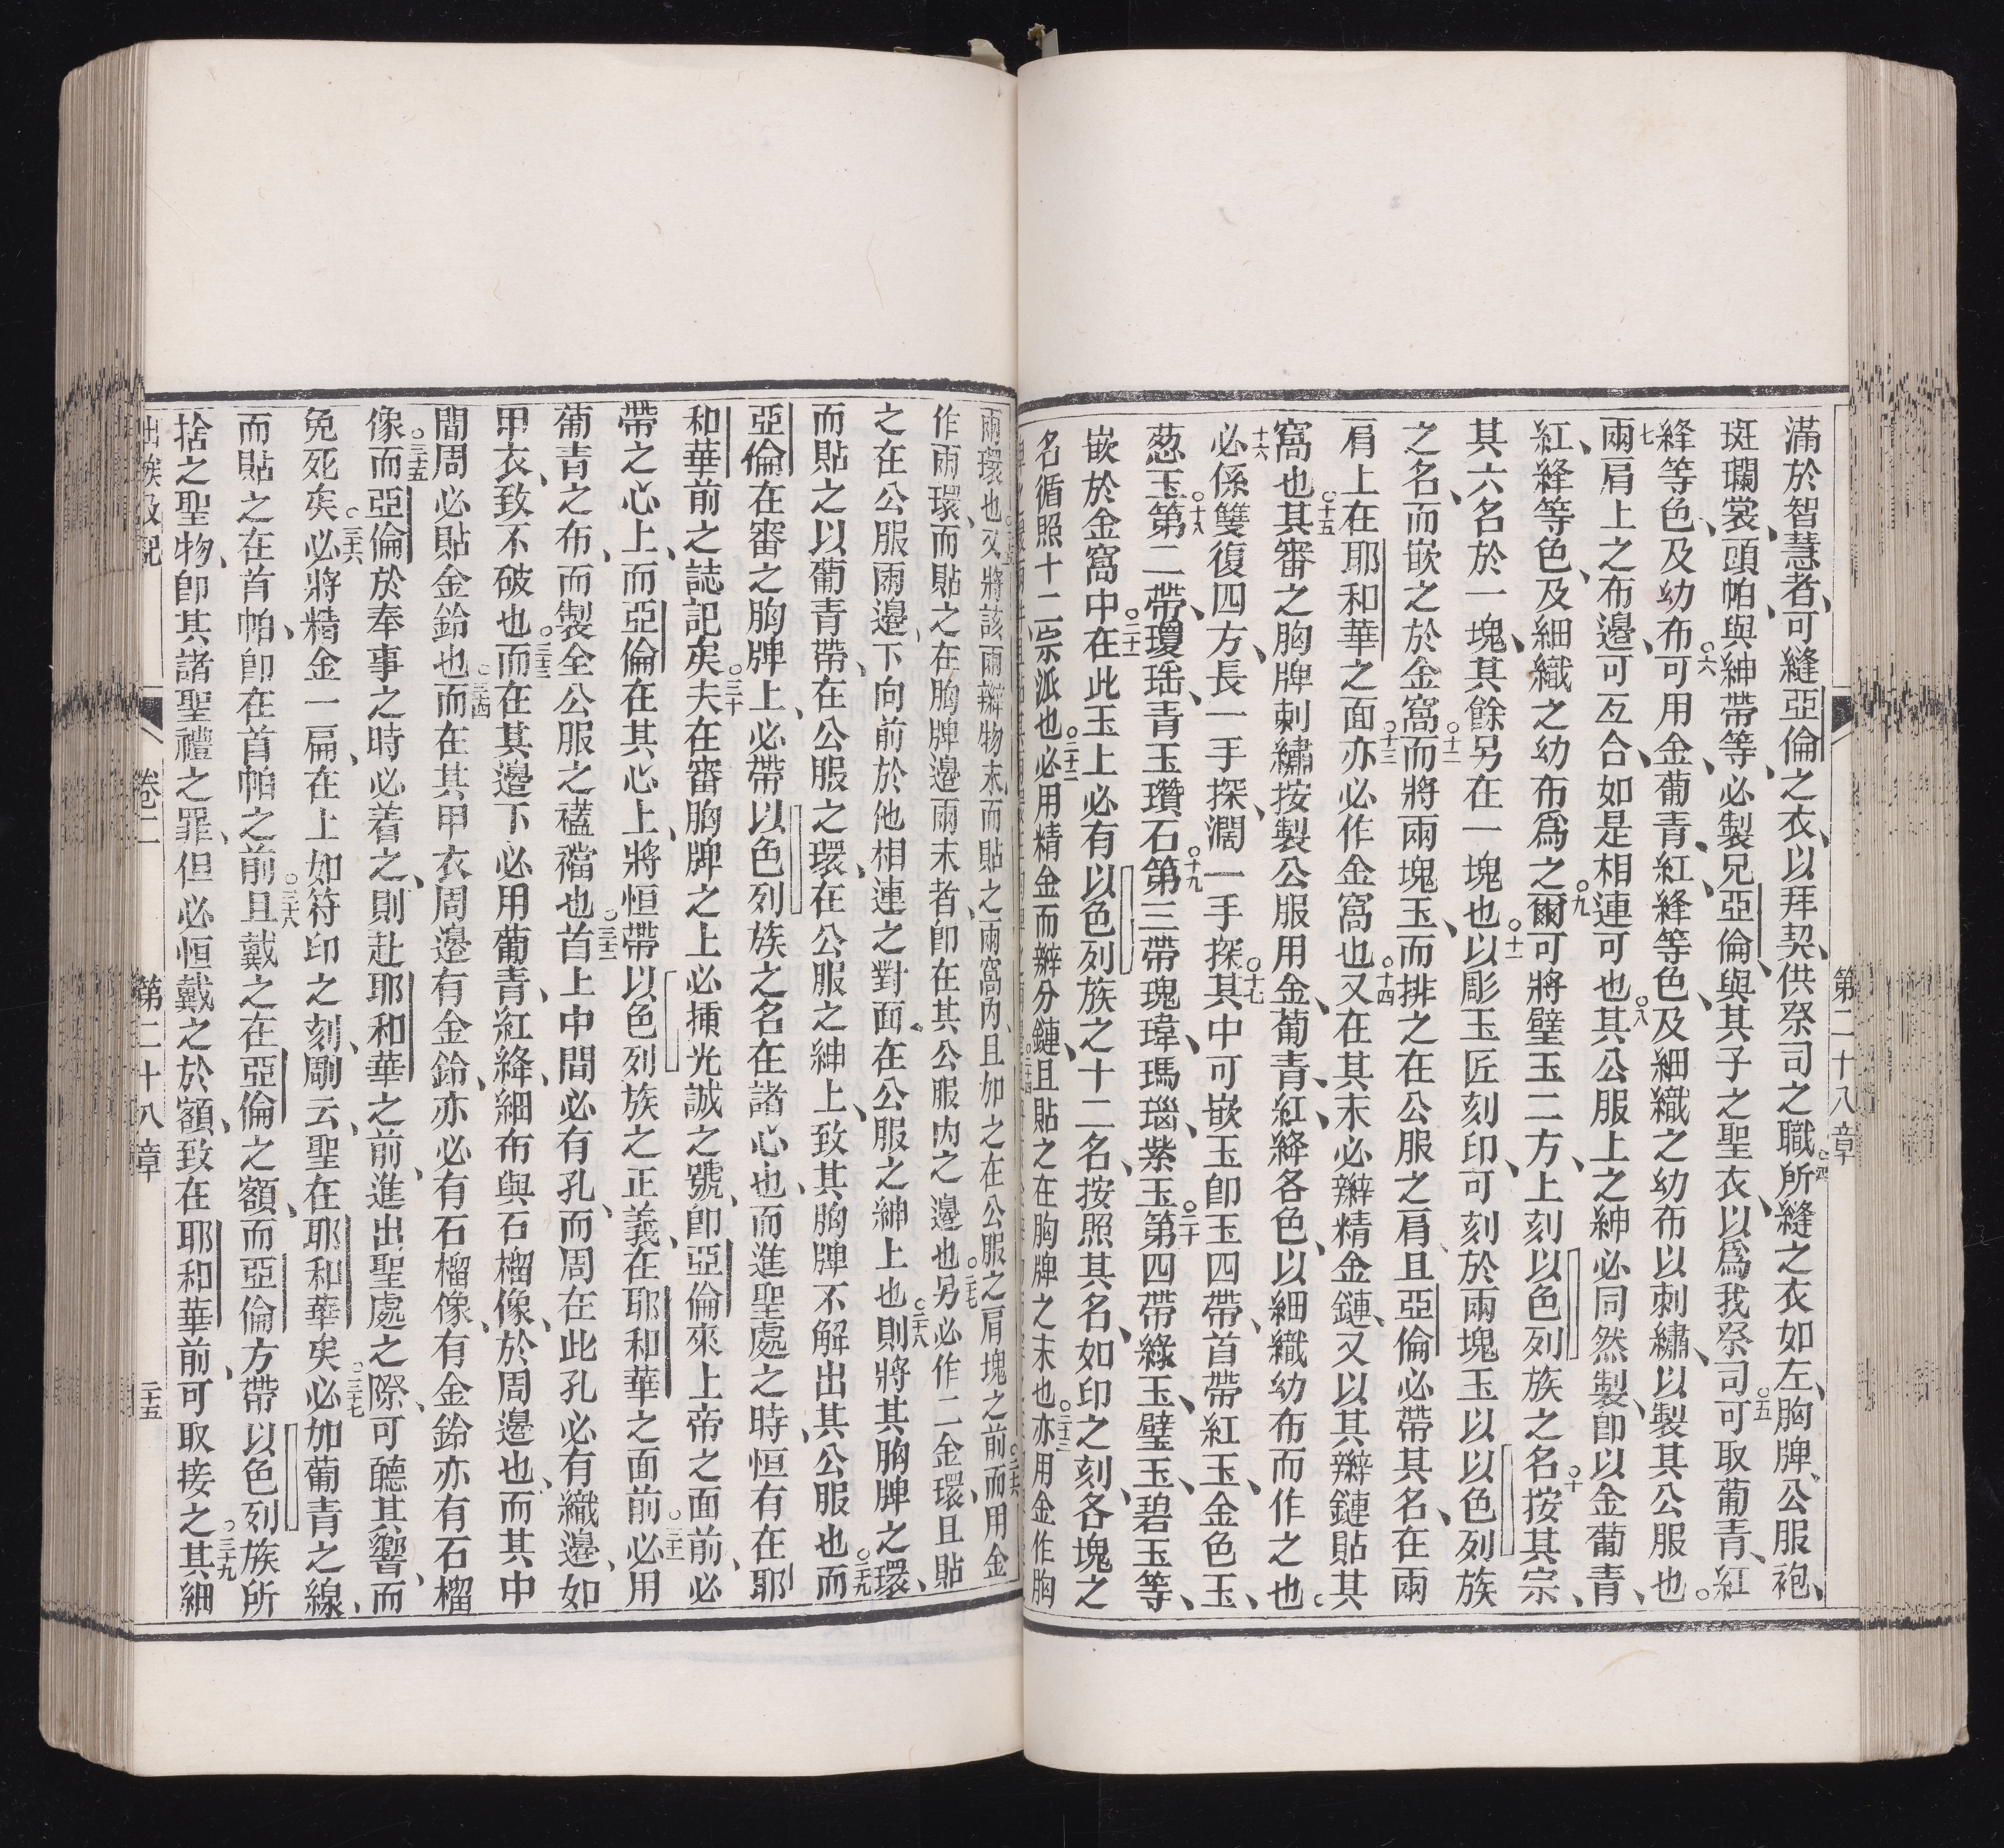 第二十八章
滿於智慧者、可縫亞倫之衣、以拜契、供祭司之職○四所縫之衣如左、胸牌、公服、袍、
斑斕裳、頭帕、與紳帶等、必製兄亞倫、與其子之聖衣、以爲我祭司○五可取葡青、紅
絳等色、及幼布○六可用金、葡青、紅、絳等色、及細織之幼布以刺繡、以製其公服也。
七兩肩上之布邊、可互合、如是相連可也○八其公服上之紳必同然製、卽以金葡青、
紅、絳等色、及細織之幼布爲之○九爾可將璧玉二方、上刻以色列族之名○十按其宗、
其六名於一塊、其餘另在一塊也○十一以彫玉匠刻印、可刻於兩塊玉以以色列族
之名、而嵌之於金窩○十二而將兩塊玉、而排之在公服之肩、且亞倫必帶其名、在兩
肩上在耶和華之面○十三亦必作金窩也○十四又在其末必辮精金鏈、又以其辮鏈貼其
窩也○十五其審之胸牌刺繡、按製公服用金、葡青、紅、絳各色、以細織幼布而作之也。
十六必係雙復四方、長一手探、濶一手探○十七其中可嵌玉卽玉四帶、首帶紅玉、金色玉、
葱玉○十八第二帶、瓊瑤、青玉、瓚石○十九第三帶瑰瑋、瑪瑙、紫玉○二十第四帶綠玉、璧玉、碧玉等、
嵌於金窩中○二十一在此玉上必有以色列族之十二名、按照其名、如印之刻、各塊之
名循照十二宗派也○二十二必用精金而辮分鏈、且貼之在胸牌之末也○二十三亦用金作胸
兩環也○二十五又將該兩辮物末、而貼之兩窩內、且加之在公服之肩塊之前○二十六而用金
作兩環、而貼之在胸牌邊兩末者、卽在其公服內之邊也○二十七另必作二金環、且貼
之在公服兩邊、下向前於他相連之對面、在公服之紳上也○二十八則將其胸牌之環、
而貼之以葡青帶、在公服之環、在公服之紳上、致其胸牌不解出其公服也○二十九而
亞倫在審之胸牌上、必帶以色列族之名在諸心也、而進聖處之時、恒有在耶
和華前之誌記矣○三十夫在審胸牌之上必插光誠之號、卽亞倫來上帝之面前、必
帶之心上、而亞倫在其心上、將恒帶以色列族之正義、在耶和華之面前○三十一必用
葡青之布、而製全公服之襠也○三十二首上中間必有孔、而周在此孔必有織邊、如
甲衣、致不破也○三十三而在其邊下必用葡青、紅絳、細布與石榴像、於周邊也、而其中
間周必貼金鈴也○三十四而在其甲衣周邊有金鈴、亦必有石榴像、有金鈴亦有石榴
像○三十五而亞倫於奉事之時必着之、則赴耶和華之前、進出聖處之際、可聽其響、而
免死矣○三十六必將精金一扁、在上如符印之刻、剛云、聖在耶和華矣○三十七必加葡青之線、
而貼之在首帕、卽在首帕之前○三十八且戴之在亞倫之額、而亞倫方帶以色列族所
捨之聖物、卽其諸聖禮之罪、但必恒戴之於額、致在耶和華前、可取接之○三十九其細
出㑹及記 卷二 第二十八章 二十五